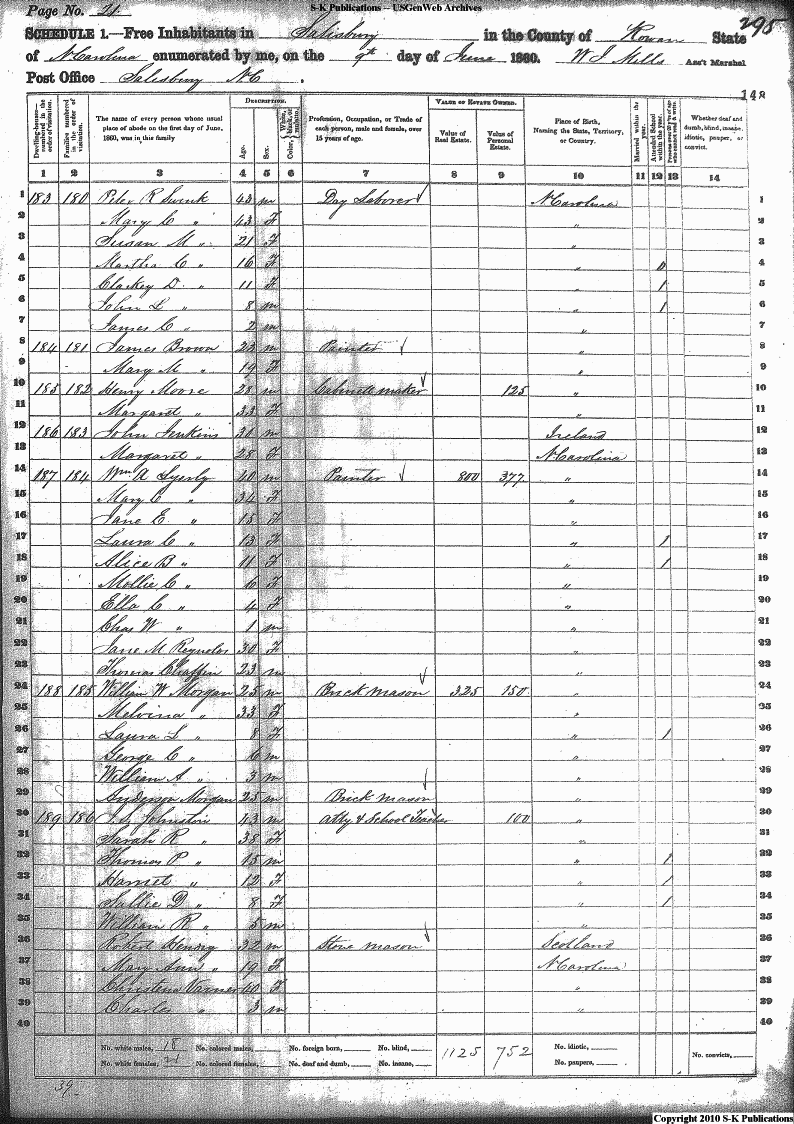 S-K Publications – USGenWeb Archives
Page No. 21
295
SCHEDULE 1.—Free Inhabitants in Salisbury in the County of Rowan State
of N Carolina enumerated by me, on the 9th day of June 1860. W J Mills Ass't Marshal
Post Office Salisbury NC.
148
Dwelling-house—numbered in the order of visitation.
Families numbered in the order of visitation.
The name of every person whose usual place of abode on the first day of June, 1860, was in this family
DESCRIPTION.
Age.
Sex.
Color, White, black, or mulatto.
Profession, Occupation, or Trade of each person, male and female, over 15 years of age.
VALUE OF ESTATE OWNED.
Value of Real Estate.
Value of Personal Estate.
Place of Birth, Naming the State, Territory, or Country.
Married within the year.
Attended School within the year.
Persons over 20 y'rs of age who cannot read & write.
Whether deaf and dumb, blind, insane, idiotic, pauper, or convict.
1 2 3 4 5 6 7 8 9 10 11 12 13 14
1 183 180 Peter R Swink 43 m Day Laborer N Carolina 1
2 Mary C " 43 F " 2
3 Susan M " 21 F " 3
4 Martha C " 16 F " 4
5 Clarkey D. " 11 F " 1 5
6 John L " 8 m " 1 6
7 James C " 2 m " 7
8 184 181 James Brown 23 m Painter " 8
9 Mary M " 19 F " 9
10 185 182 Henry Moore 28 m Cabinett maker 125 " 10
11 Margaret " 33 F " 11
12 186 183 John Jenkins 30 m Ireland 12
13 Margaret " 28 F N Carolina 13
14 187 184 Wm A Lyerly 40 m Painter 800 377 " 14
15 Mary C " 34 F " 15
16 Jane E " 15 F " 16
17 Laura C " 13 F " 1 17
18 Alice B " 11 F " 1 18
19 Mollie C " 6 F " 19
20 Ella C " 4 F " 20
21 Chas W " 1 m " 21
22 Jane M Reynolds 30 F " 22
23 Thomas Chaffin 23 m " 23
24 188 185 William W Morgan 25 m Brick mason 325 150 " 24
25 Melvina " 33 F " 25
26 Laura L " 8 F " 1 26
27 George C " 6 m " 27
28 William A " 3 m " 28
29 Anderson Morgan 25 m Brick mason " 29
30 189 186 Johnston 43 m Atty & School Teacher 100 " 30
31 Sarah R " 38 F " 31
32 Thomas P " 15 m " 1 32
33 Harriet " 12 F " 1 33
34 Sallie D " 8 F " 1 34
35 William R " 5 m " 35
36 Robert Hendry 32 m Stone mason Scotland 36
37 Mary Ann " 19 F N Carolina 37
38 Christena Varner 60 F " 38
39 Charles " 3 m " 39
40 40
No. white males, 18 No. colored males, No. foreign born, No. blind, 1125 752 No. idiotic, No. convicts,
No. white females, 21 No. colored females, No. deaf and dumb, No. insane, No. paupers,
39
Copyright 2010 S-K Publications